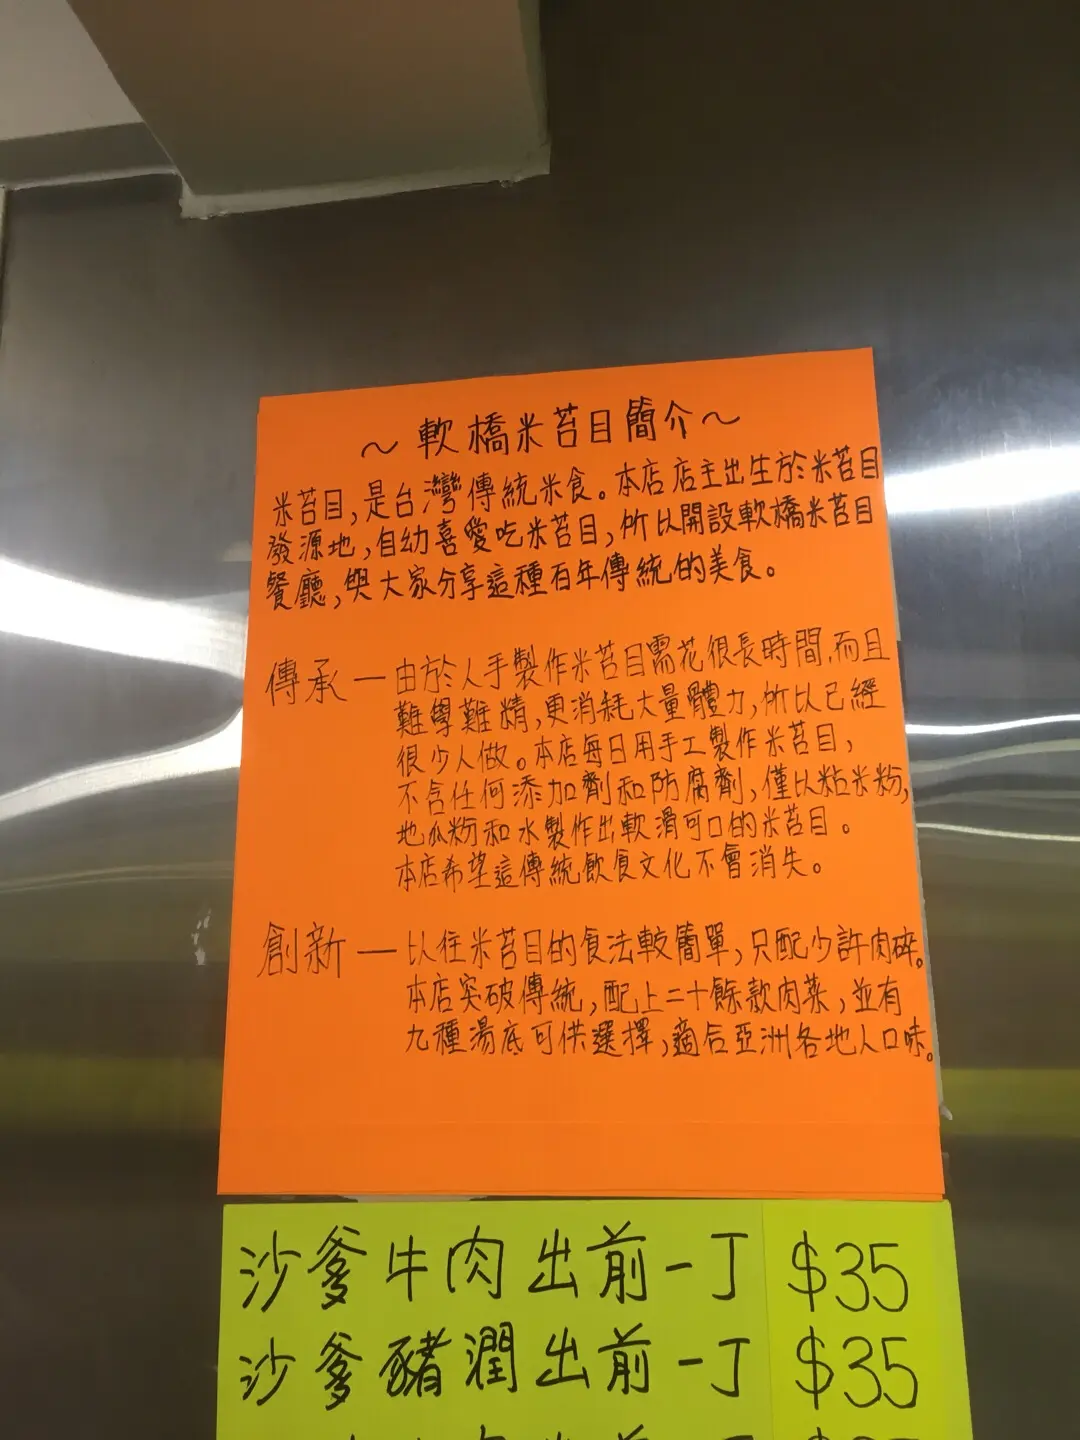 ～軟橋米苔目簡介～
米苔目,是台灣傳統米食。本店店主出生於米苔目
發源地,自幼喜愛吃米苔目,所以開設軟橋米苔目
餐廳,與大家分享這種百年傳統的美食。
傳承—由於人手製作米苔目需花很長時間,而且
難學難精,更消耗大量體力,所以已經
很少人做。本店每日用手工製作米苔目,
不含任何添加劑和防腐劑,僅以粘米粉,
地瓜粉和水製作出軟滑可口的米苔目。
本店希望這傳統飲食文化不會消失。
創新—以往米苔目的食法較簡單,只配少許肉碎。
本店突破傳統,配上二十餘款肉菜,並有
九種湯底可供選擇,適合亞洲各地人口味。
沙爹牛肉出前一丁 $35
沙爹豬潤出前一丁 $35